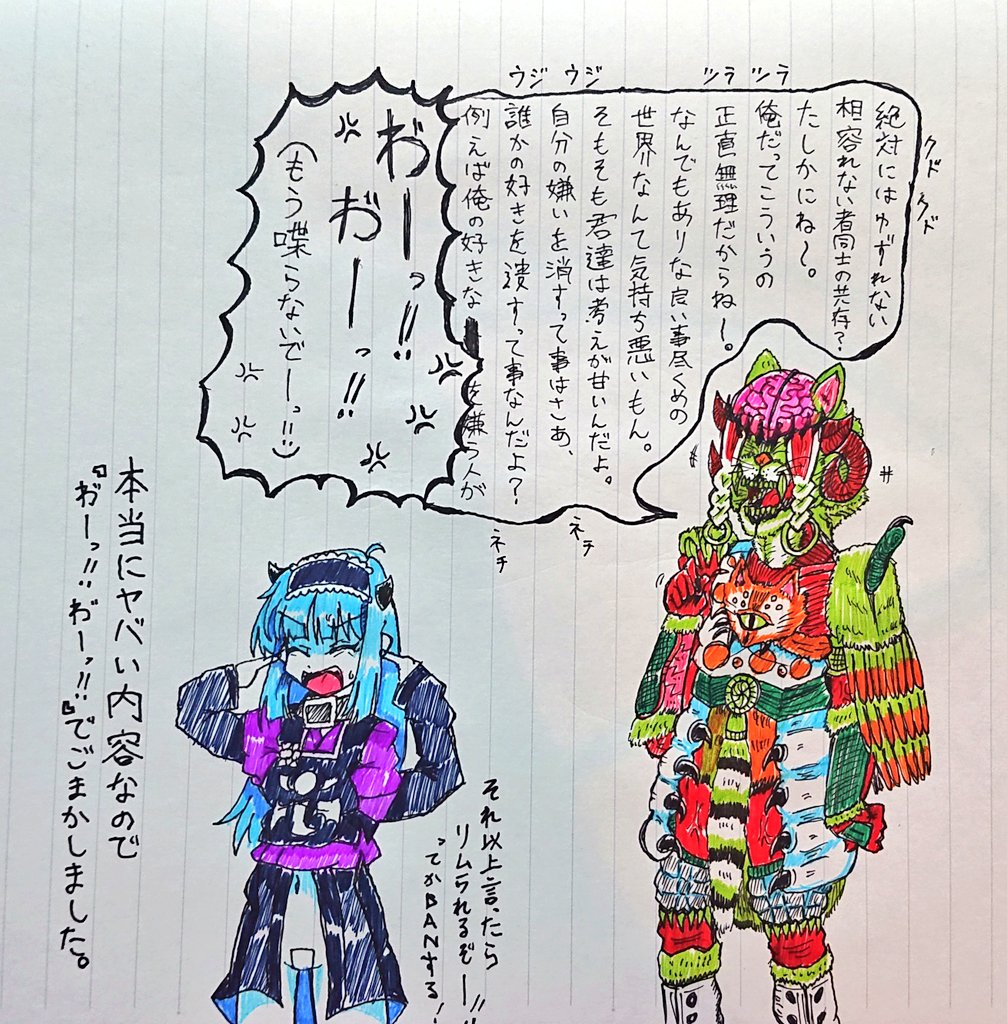 クドクド
ツラツラ
ウジウジ
絶対にはゆずれない
相容れない者同士の共存?
たしかにね〜。
俺だってこういうの
正直無理だからねー。
なんでもありな良い事尽くめの
世界なんて気持ち悪いもん。
そもそも君達は考えが甘いんだよ。
自分の嫌いを消すって事はさあ、
誰かの好きを潰すって事なんだよ?
例えば俺の好きな
を嫌う人が
ネチ
ネチ
わーっ!!
わーっ!!
(もう喋らないでーっ!!)
それ以上言ったら
リムられるぞー!!
ってかBANする!
本当にヤバい内容なので
『わーっ!!わーっ!!』でごまかしました。